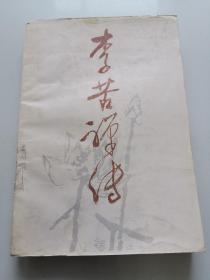 李苦禅传